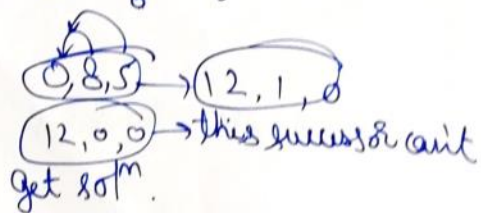 0,8,5 → 12,1,0
12,0,0 → this successor can't
get solⁿ.